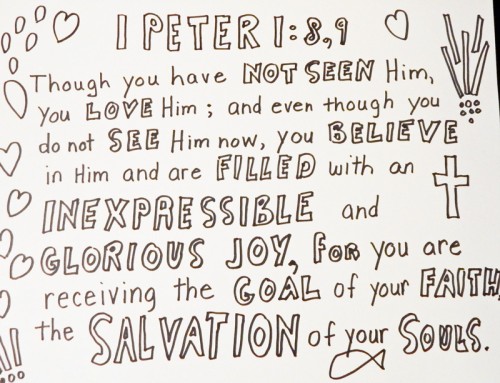 1 PETER 1:8,9
Though you have NOT SEEN Him,
you LOVE Him; and even though you
do not SEE Him now, you BELIEVE
in Him and are FILLED with an
INEXPRESSIBLE and
GLORIOUS JOY, FOR you are
receiving the GOAL of your FAITH,
the SALVATION of your SOULS.